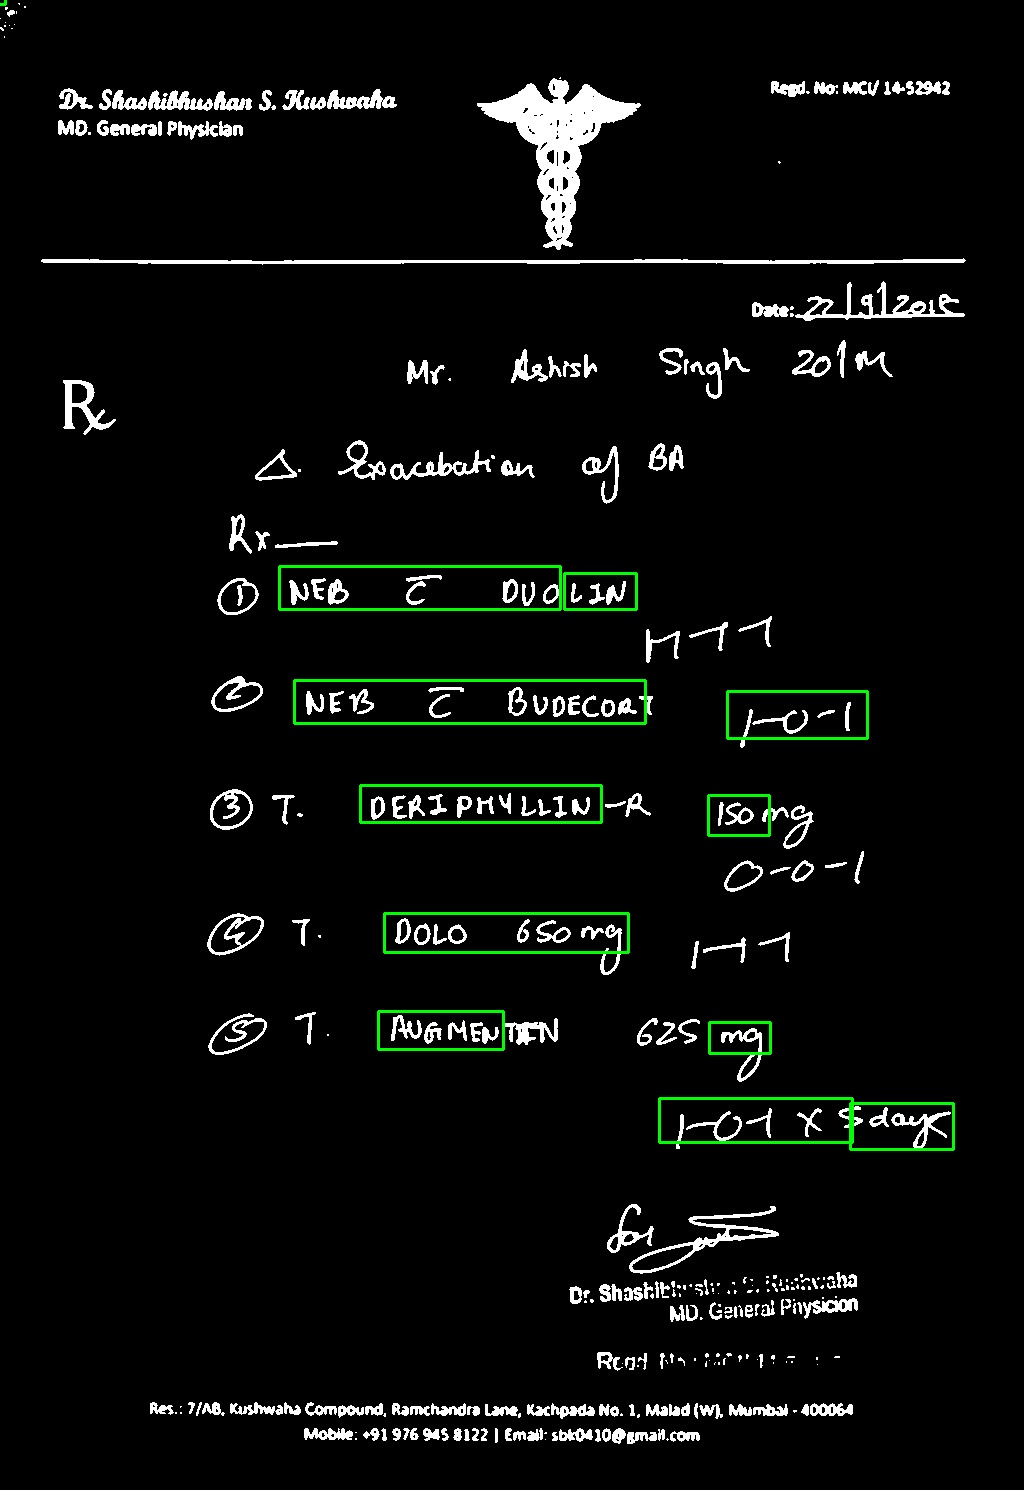 Dr. Shashibhushan S. Kushwaha
MD. General Physician
Regd. No: MCI/ 14-52942
Date: 22/9/2018
Mr. Ashish Singh 20/M
Rx
Δ. Exacebation of BA
Rx
① NEB c̅ DUOLIN
1-1-1
② NEB c̅ BUDECORT 1-0-1
③ T. DERIPHYLLIN-R 150mg
0-0-1
④ T. DOLO 650mg 1-1-1
⑤ T. AUGMENTIN 625 mg
1-0-1 x 5 days
Dr. Shashibhushan S. Kushwaha
MD. General Physician
Regd. No.: MCI/
Res.: 7/AB, Kushwaha Compound, Ramchandra Lane, Kachpada No. 1, Malad (W), Mumbai - 400064
Mobile: +91 976 945 8122 | Email: sbk0410@gmail.com